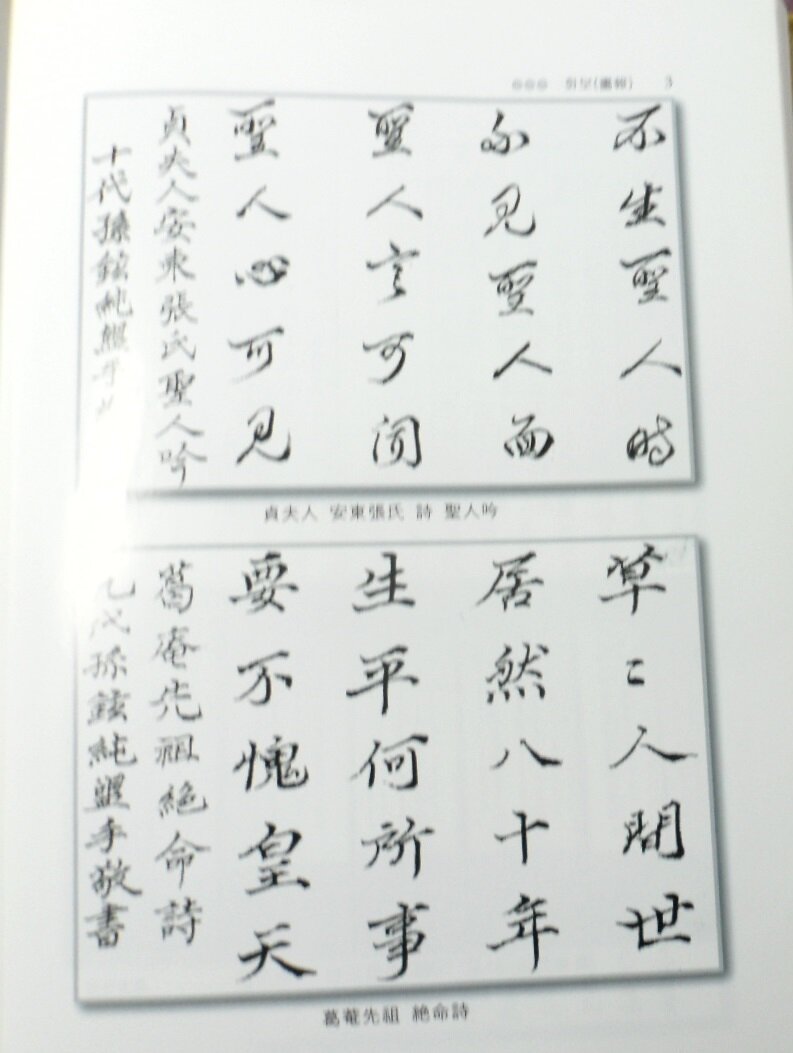 화보(畵報) 3
不生聖人時
不見聖人面
聖人言可聞
聖人心可見
貞夫人安東張氏聖人吟
十代孫鉉純盥手
貞夫人 安東張氏 詩 聖人吟
草〻人間世
居然八十年
生平何所事
要不愧皇天
葛庵先祖絶命詩
九代孫鉉純盥手敬書
葛菴先祖 絶命詩